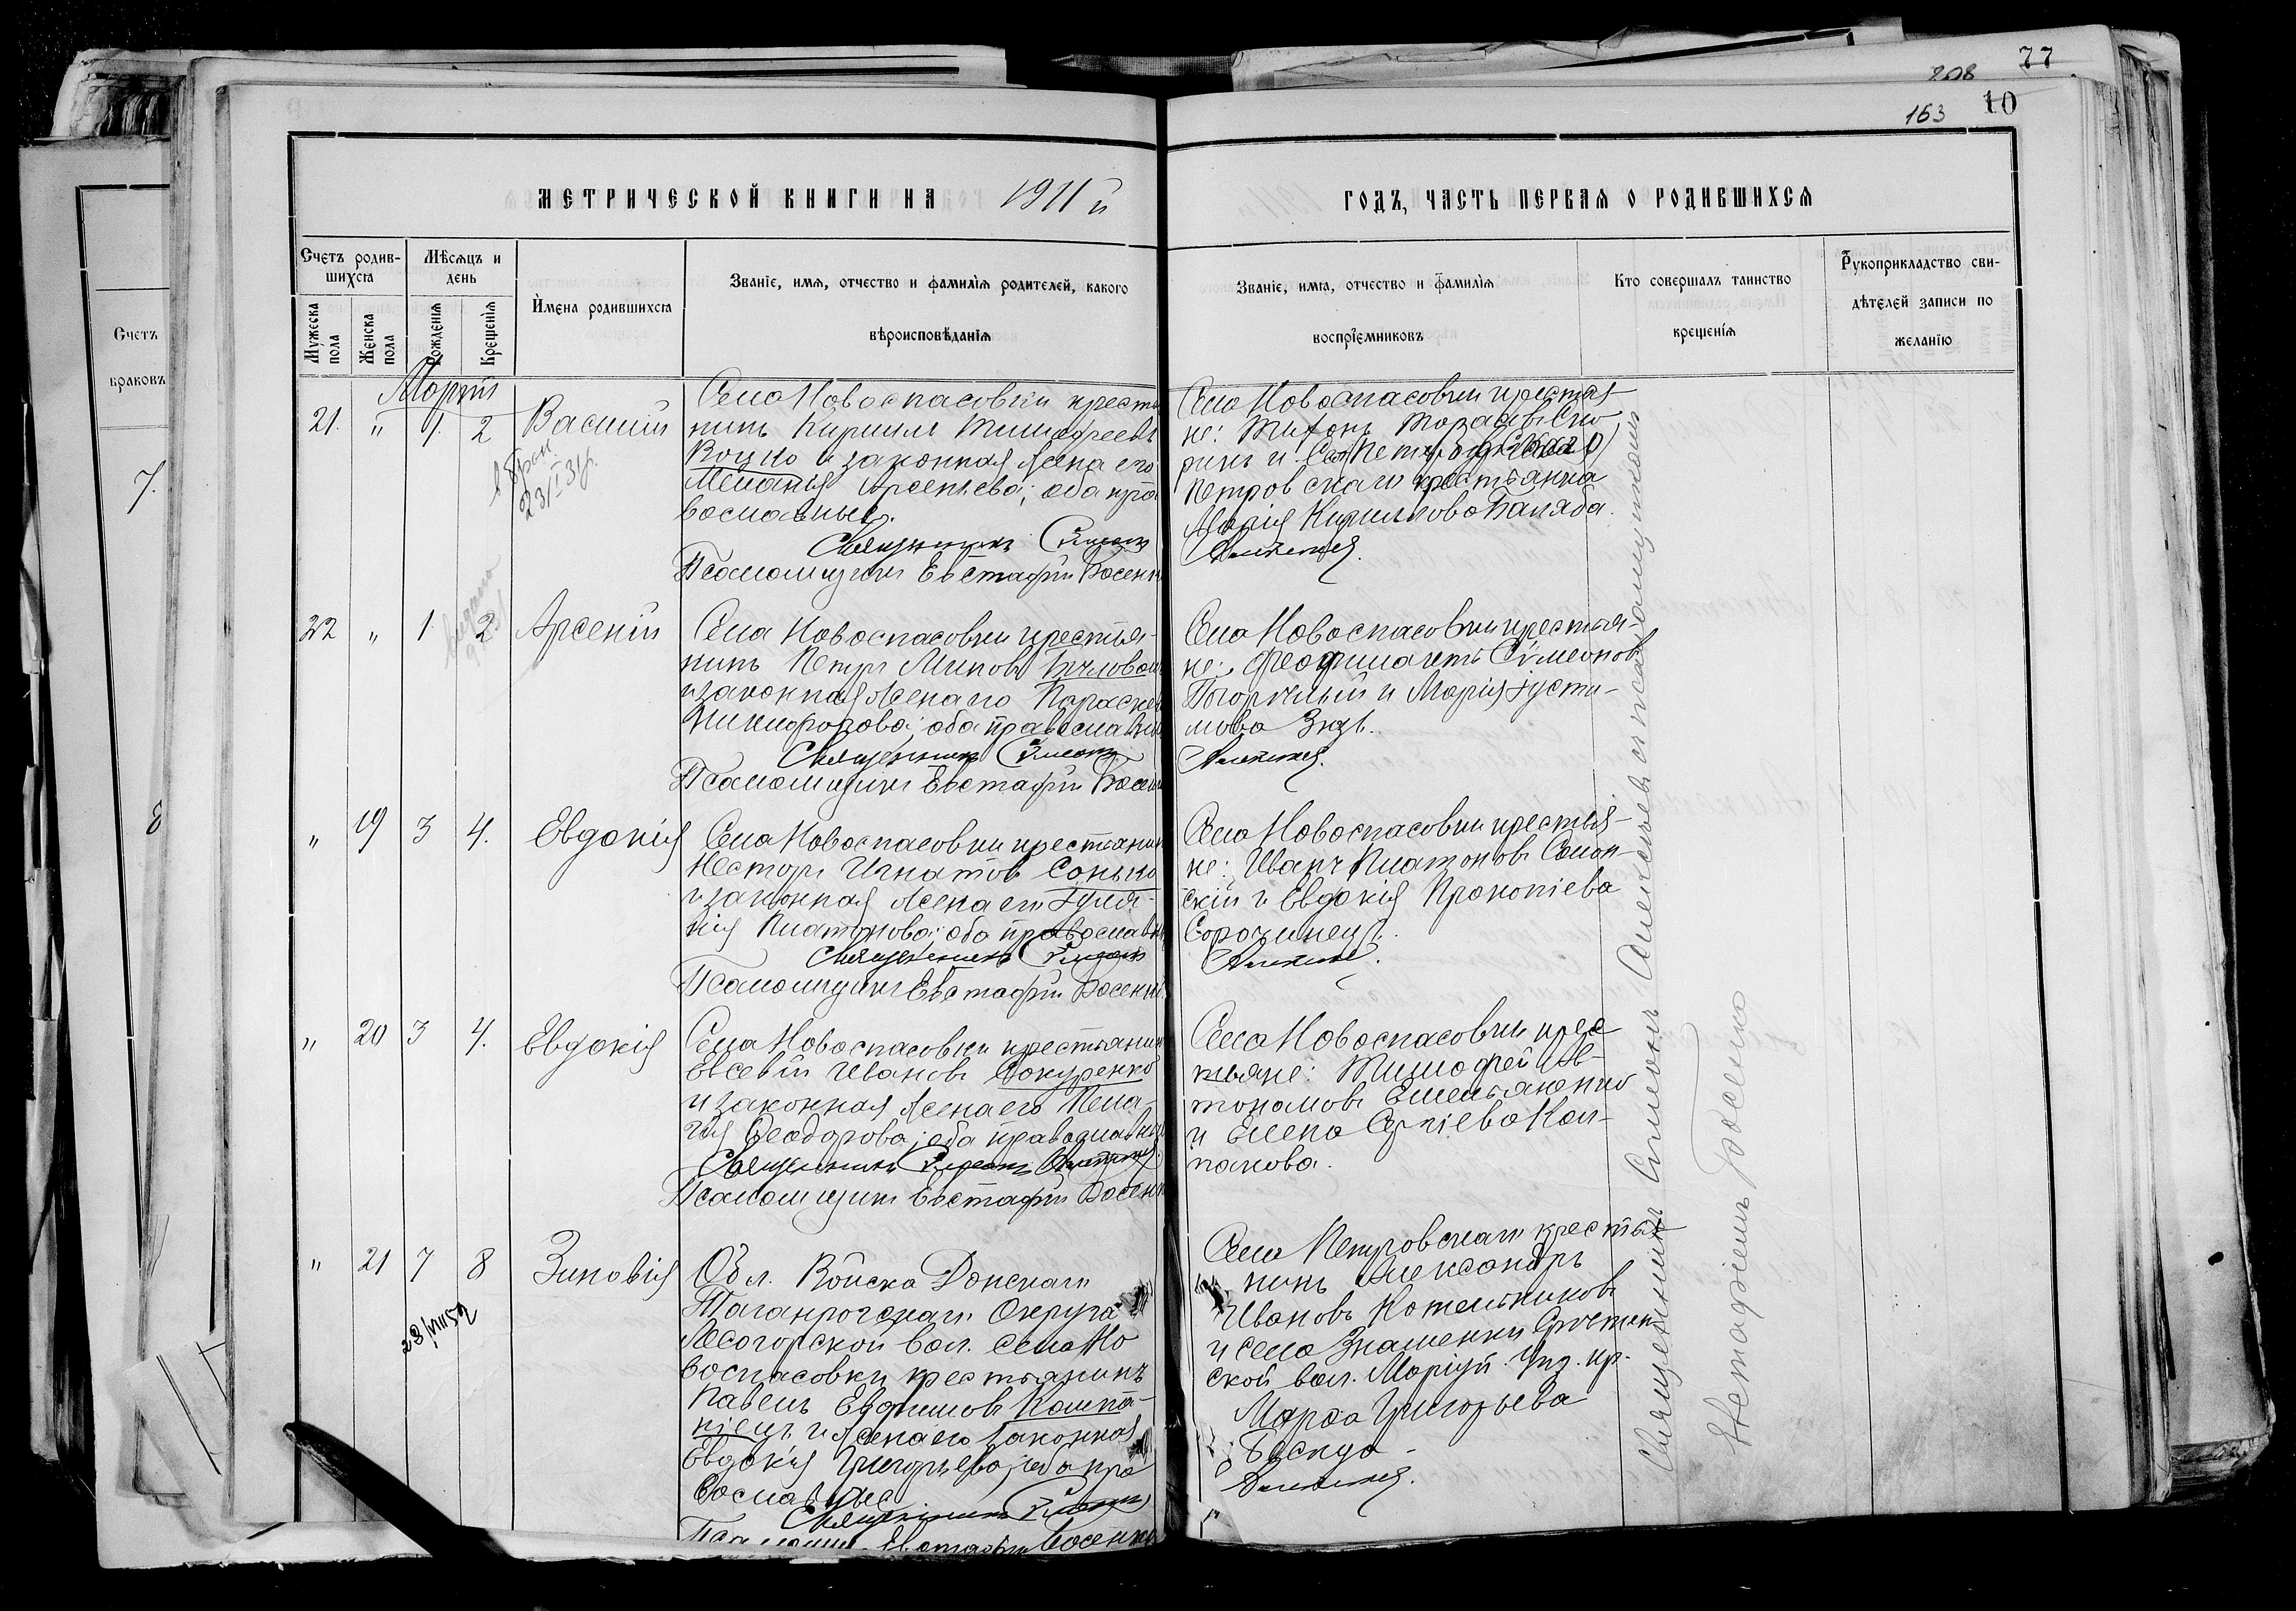 77
208
163 10
МЕТРИЧЕСКОЙ КНИГИ НА 1911 й
ГОДЪ, ЧАСТЬ ПЕРВАЯ О РОДИВШИХСЯ
Счетъ родив-
шихся
Мужеска
пола
Женска
пола
Мѣсяцъ и
день
Рожденія
Крещенія
Имена родившихся
Званіе, имя, отчество и фамилія родителей, какого
вѣроисповѣданія
Званіе, имя, отчество и фамилія
воспріемниковъ
Кто совершалъ таинство
крещенія
Рукоприкладство сви-
дѣтелей записи по
желанію
Счетъ
браковъ
7.
8
Мартъ
21. " 1. 2 Василій
23/I 31 г.
Села Новоспасовки крестья
нинъ Кирилл Тимофеевъ
Коцко и законная жена его
Меланія Арсеньева; оба пра
вославные.
Священникъ Симеонъ
Псаломщикъ Евстафій Босенко
Села Новоспасовки крестья-
не: Тихонъ Тарасовъ
Петровскаго крестьянка
Марія Кириллова Баляба.
22 " 1 2 Арсеній
Села Новоспасовки крестья-
нинъ Петръ
и законная жена его Параскева
Никифорова; оба православные
Священникъ Симеонъ
Псаломщикъ Евстафій Босенко
Села Новоспасовки крестья-
не: Феофилактъ Симеоновъ
Погорѣлый и Марія Іусти-
нова
" 19 3 4. Евдокія
Села Новоспасовки крестьянинъ
Несторъ Игнатовъ Сонько
и законная жена его Гли-
кія Платонова; оба православные
Священникъ Симеонъ
Псаломщикъ Евстафій Босенко
Села Новоспасовки крестья-
не: Иванъ Платоновъ
скій и Евдокія Прокопіева
Сорочинецъ.
" 20 3 4. Евдокія
Села Новоспасовки крестьянинъ
Евсевій Ивановъ Сокуренко
и законная жена его Пела-
гія Феодорова; оба православные
Священникъ Симеонъ
Псаломщикъ Евстафій Босенко
Села Новоспасовки крес
тьяне: Тимофей Ав-
тономовъ Емельяненко
и Елена Сергіева Кол-
пакова.
" 21 7 8 Зиновія
23/VIII 52
Обл. Войска Донскаго
Таганрогскаго Округа
Лесогорской вол. села Но
воспасовки крестьянинъ
Павелъ Евфимовъ Компа-
ніецъ и жена его законная
Евдокія Григорьева; оба пра
вославные
Священникъ Симеонъ
Псаломщ. Евстафій Босенко
Села Петровскаго крестья
нинъ Александръ
Ивановъ Котельниковъ
и села Знаменки
ской вол. Маріуп. уѣз. кр.
Марѳа Григорьева
Священникъ Симеонъ съ псаломщикомъ
Евстафіемъ Босенко